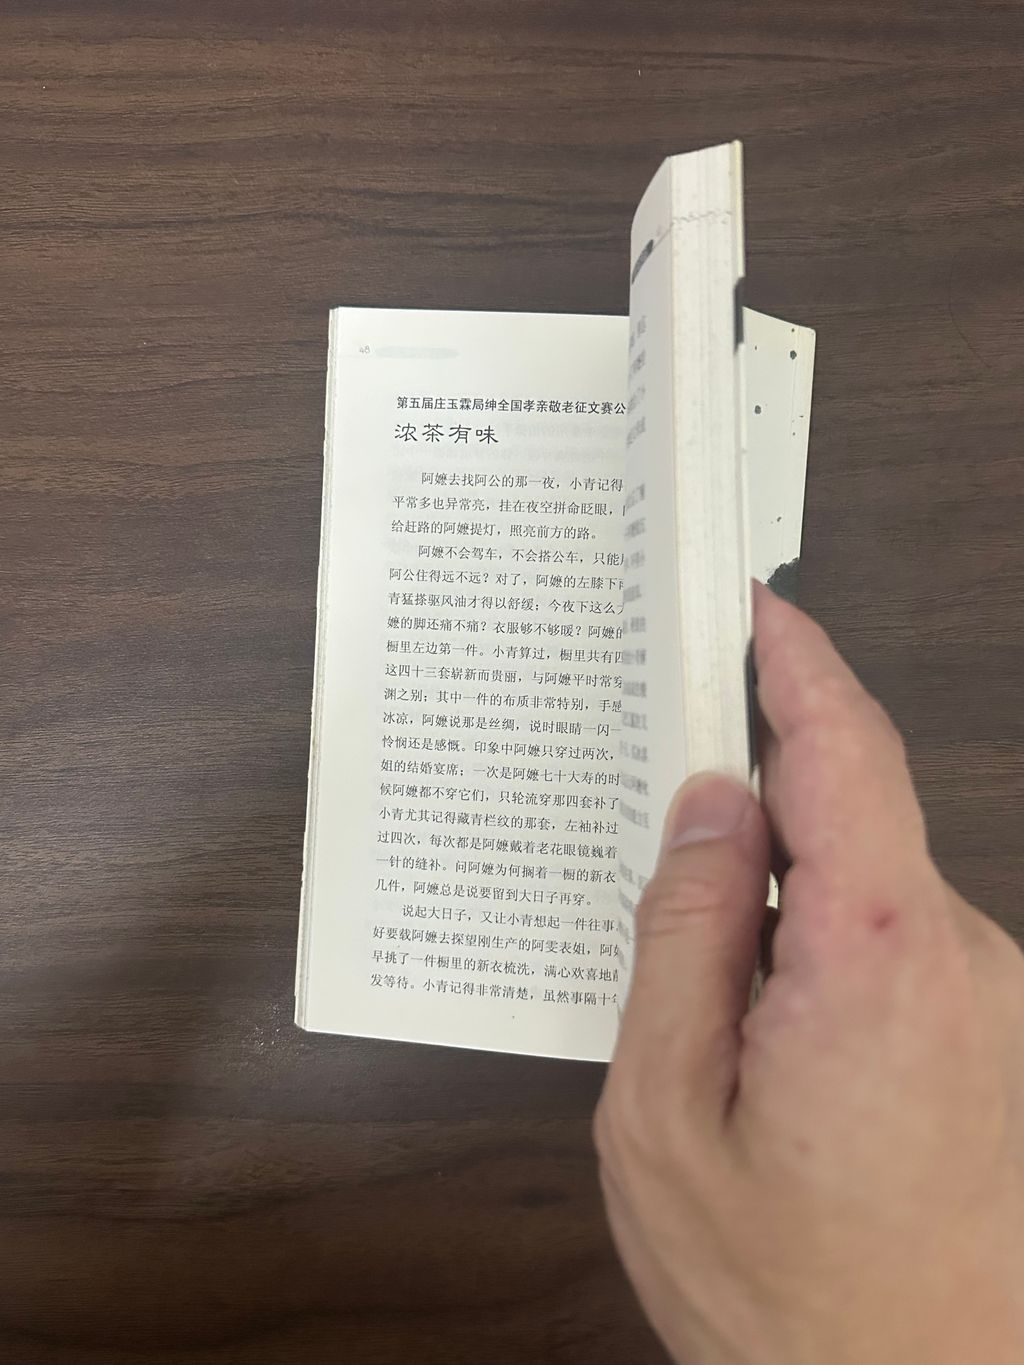 48
第五届庄玉霖局绅全国孝亲敬老征文赛公
浓茶有味
阿嬷去找阿公的那一夜，小青记得
平常多也异常亮，挂在夜空拼命眨眼，
给赶路的阿嬷提灯，照亮前方的路。
阿嬷不会驾车，不会搭公车，只能
阿公住得远不远？对了，阿嬷的左膝下
青猛搽驱风油才得以舒缓；今夜下这么
嬷的脚还痛不痛？衣服够不够暖？阿嬷的
橱里左边第一件。小青算过，橱里共有四
这四十三套崭新而贵丽，与阿嬷平时常穿
渊之别；其中一件的布质非常特别，手感
冰凉，阿嬷说那是丝绸，说时眼睛一闪一
怜悯还是感慨。印象中阿嬷只穿过两次，
姐的结婚宴席；一次是阿嬷七十大寿的时
候阿嬷都不穿它们，只轮流穿那四套补了
小青尤其记得藏青栏纹的那套，左袖补过
过四次，每次都是阿嬷戴着老花眼镜巍着
一针的缝补。问阿嬷为何搁着一橱的新衣
几件，阿嬷总是说要留到大日子再穿。
说起大日子，又让小青想起一件往事
好要载阿嬷去探望刚生产的阿雯表姐，阿
早挑了一件橱里的新衣梳洗，满心欢喜地
发等待。小青记得非常清楚，虽然事隔十